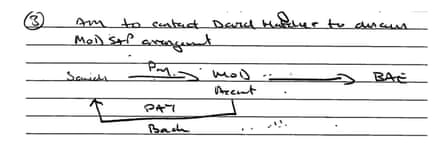 ③ Am to contact David Hatcher to discuss
MoD S&P arrangement
Pay
Saudi MoD BAE
Account
PAY
Back